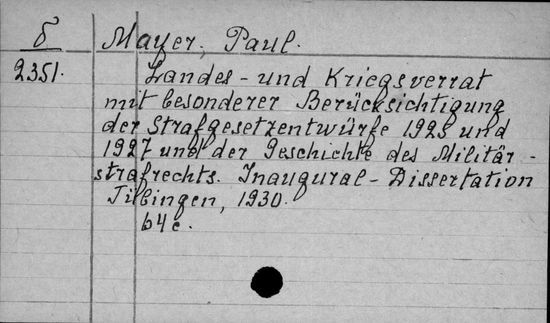 б
Mayer, Paul.
2351.
Landes- und Kriegsverrat
mit besonderer Berücksichtigung
der Strafgesetzentwürfe 1925 und
1927 und der Geschichte des Militär-
strafrechts. Inaugural-Dissertation
Tübingen, 1930.
64 c.